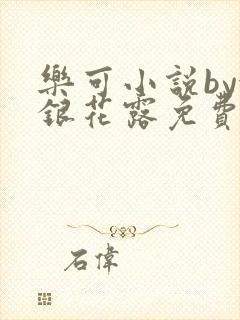 樂可小說by
銀花露免費
石偉